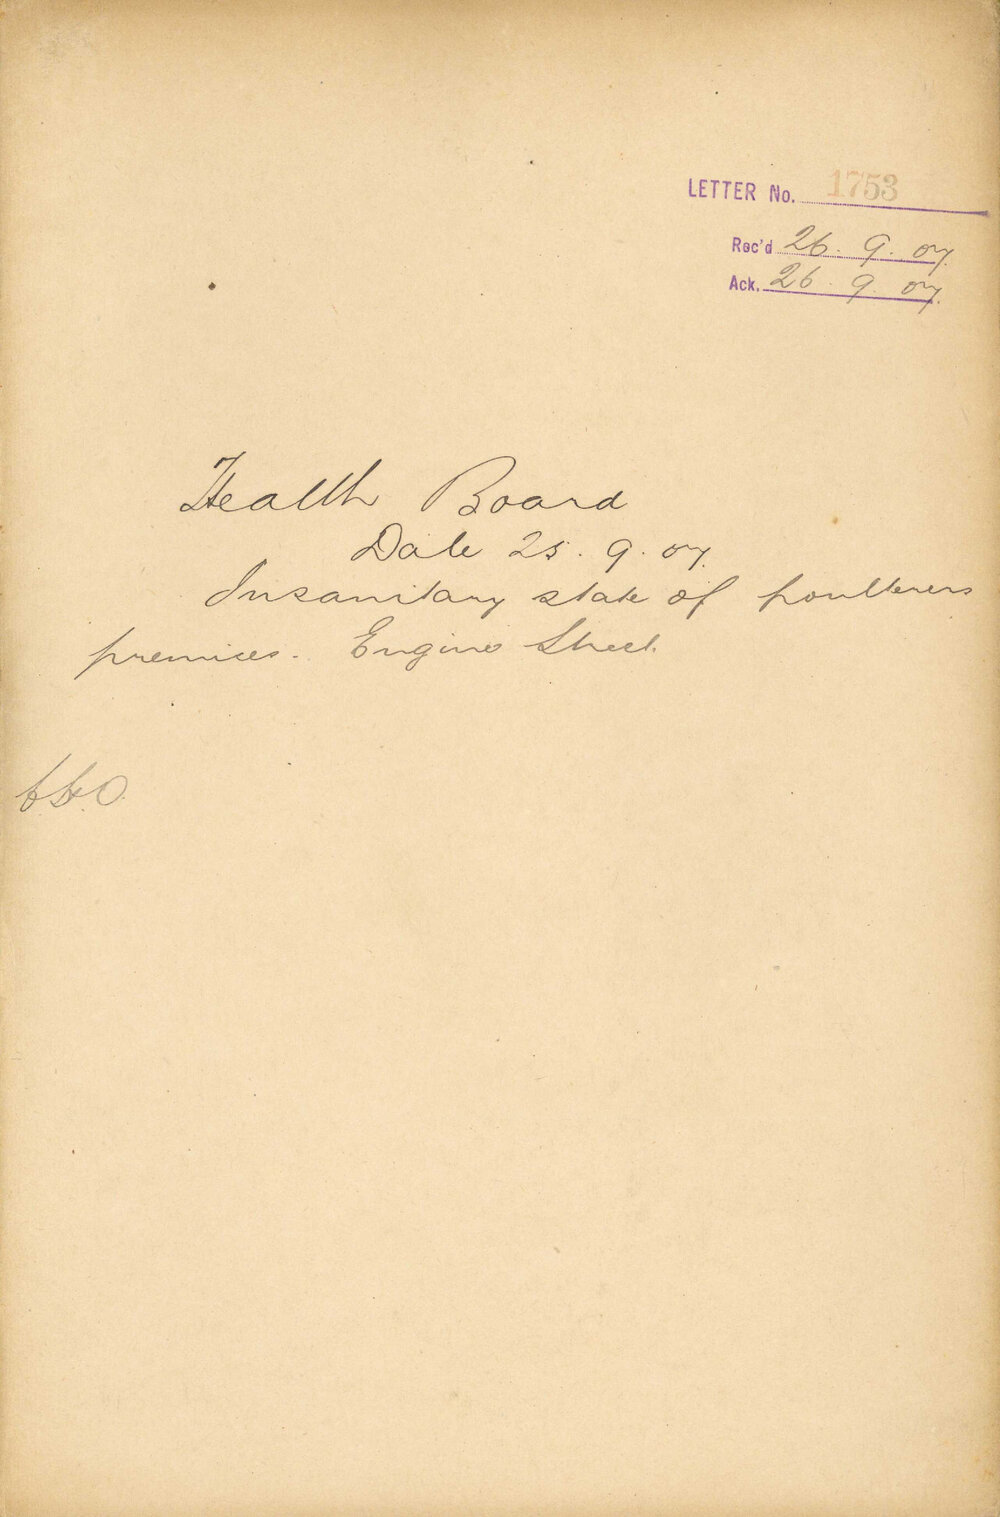 LETTER No. 1753
Rec'd 26. 9. 07.
Ack. 26. 9. 07.
Health Board
Date 25. 9. 07.
Insanitary state of poulterers
premises. Engine Street.